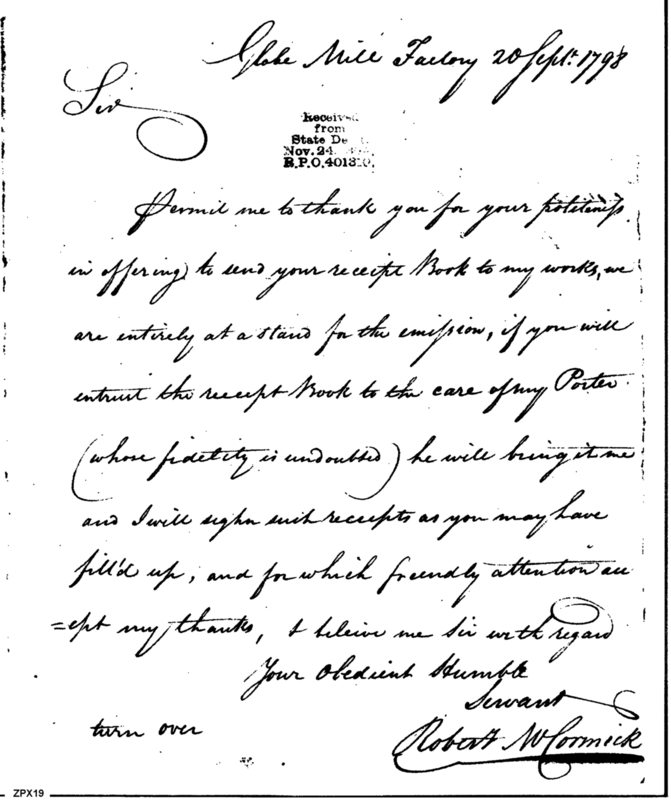 Globe Mill Factory 20 Sept. 1798
Sir
Received
from
State De
Nov. 24
R.P.O. 401310.
Permit me to thank you for your politeness
in offering to send your receipt Book to my works, we
are entirely at a stand for the emission, if you will
entrust the receipt Book to the care of my Porter
(whose fidelity is undoubted) he will bring it me
and I will sign such receipts as you may have
fill'd up, and for which friendly attention ac
=cept my thanks, & beleive me Sir with regard
Your Obedient Humble
Servant
turn over
Robert McCormick
ZPX19